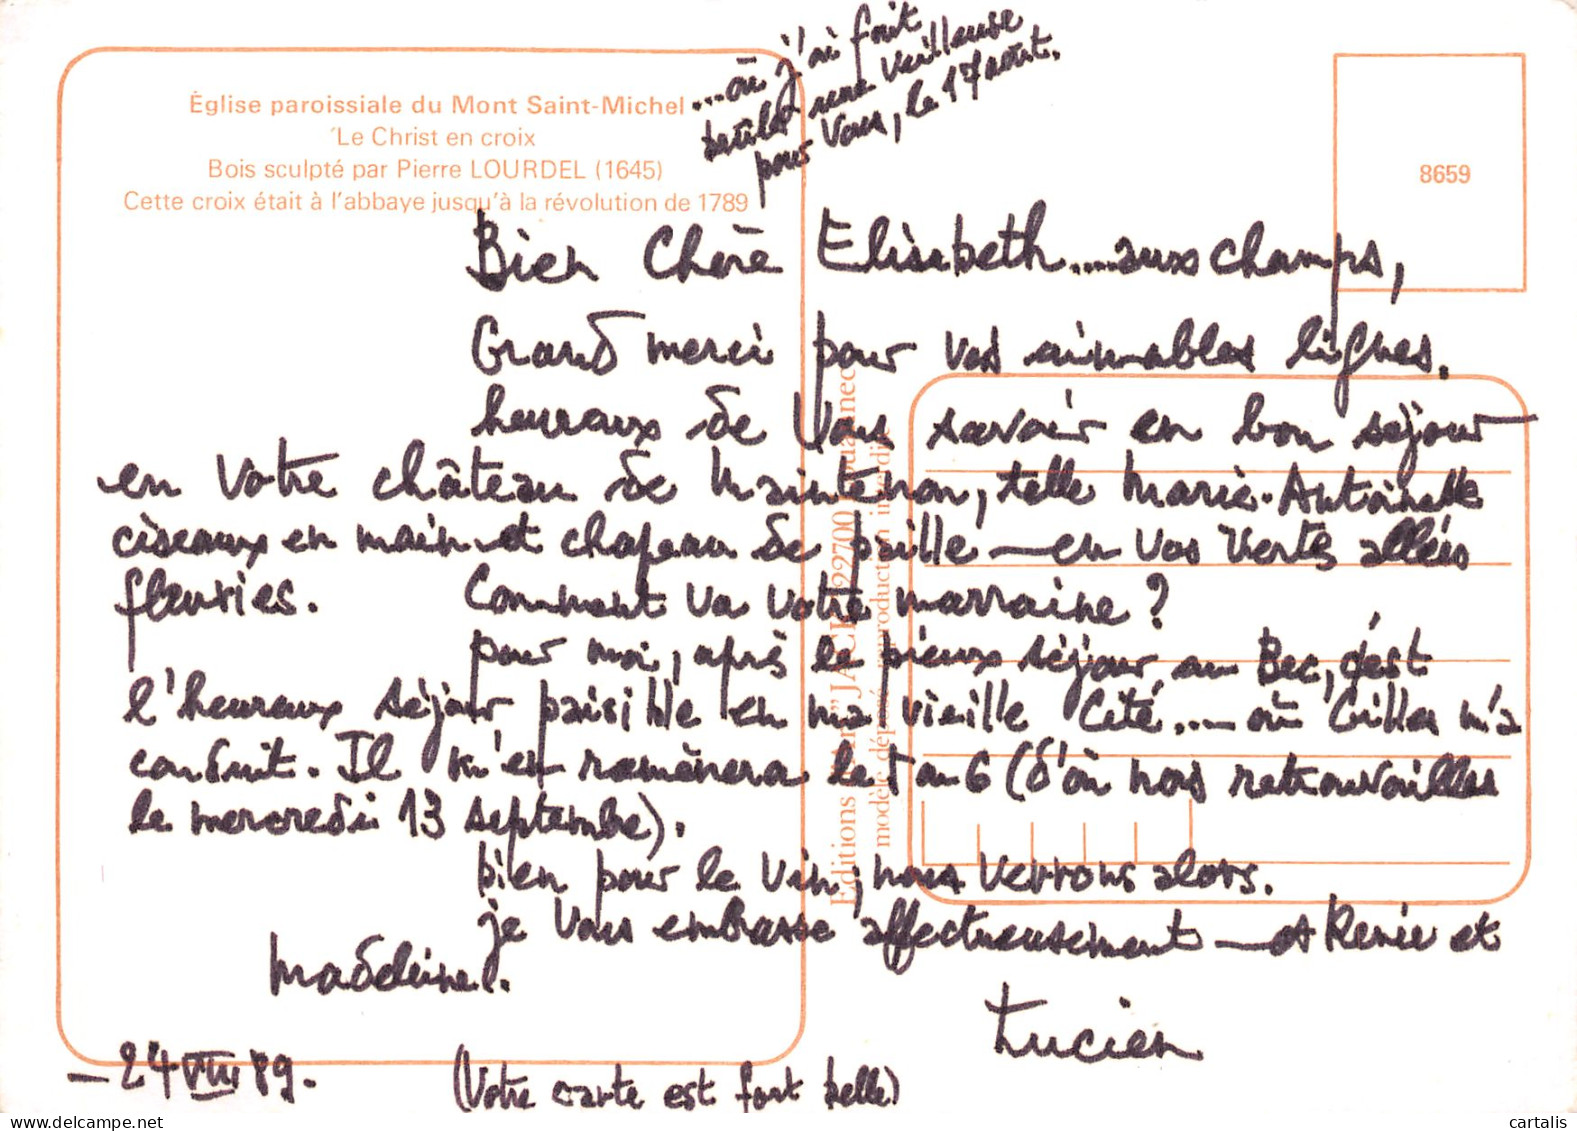 Église paroissiale du Mont Saint-Michel
'Le Christ en croix
Bois sculpté par Pierre LOURDEL (1645)
Cette croix était à l'abbaye jusqu'à la révolution de 1789
...où j'ai fait
brûler une veilleuse
pour vous, le 17 août.
8659
Bien Chère Elisabeth.....aux champs,
Grand merci pour vos aimables lignes.
heureux de Vous savoir en bon séjour
en votre château de Maintenon, telle Marie-Antoinette
ciseaux en main et chapeau de paille — en vos vertes allées
fleuries. Comment va votre marraine?
pour moi, après le pieux séjour au Bec, c'est
l'heureux séjour paisible en ma vieille Cité.... où Gilles m'a
conduit. Il m'en ramènera le 5 au 6 (d'où nos retrouvailles
le mercredi 13 septembre).
bien pour le vin; nous verrons alors.
je vous embrasse affectueusement — et Renée et
Madeleine.
Lucien
- 24 VIII 89.
(Votre carte est fort belle)
Editions d'Art "JACK" 99700 Louannec
modèle déposé reproduction interdite
cartalis